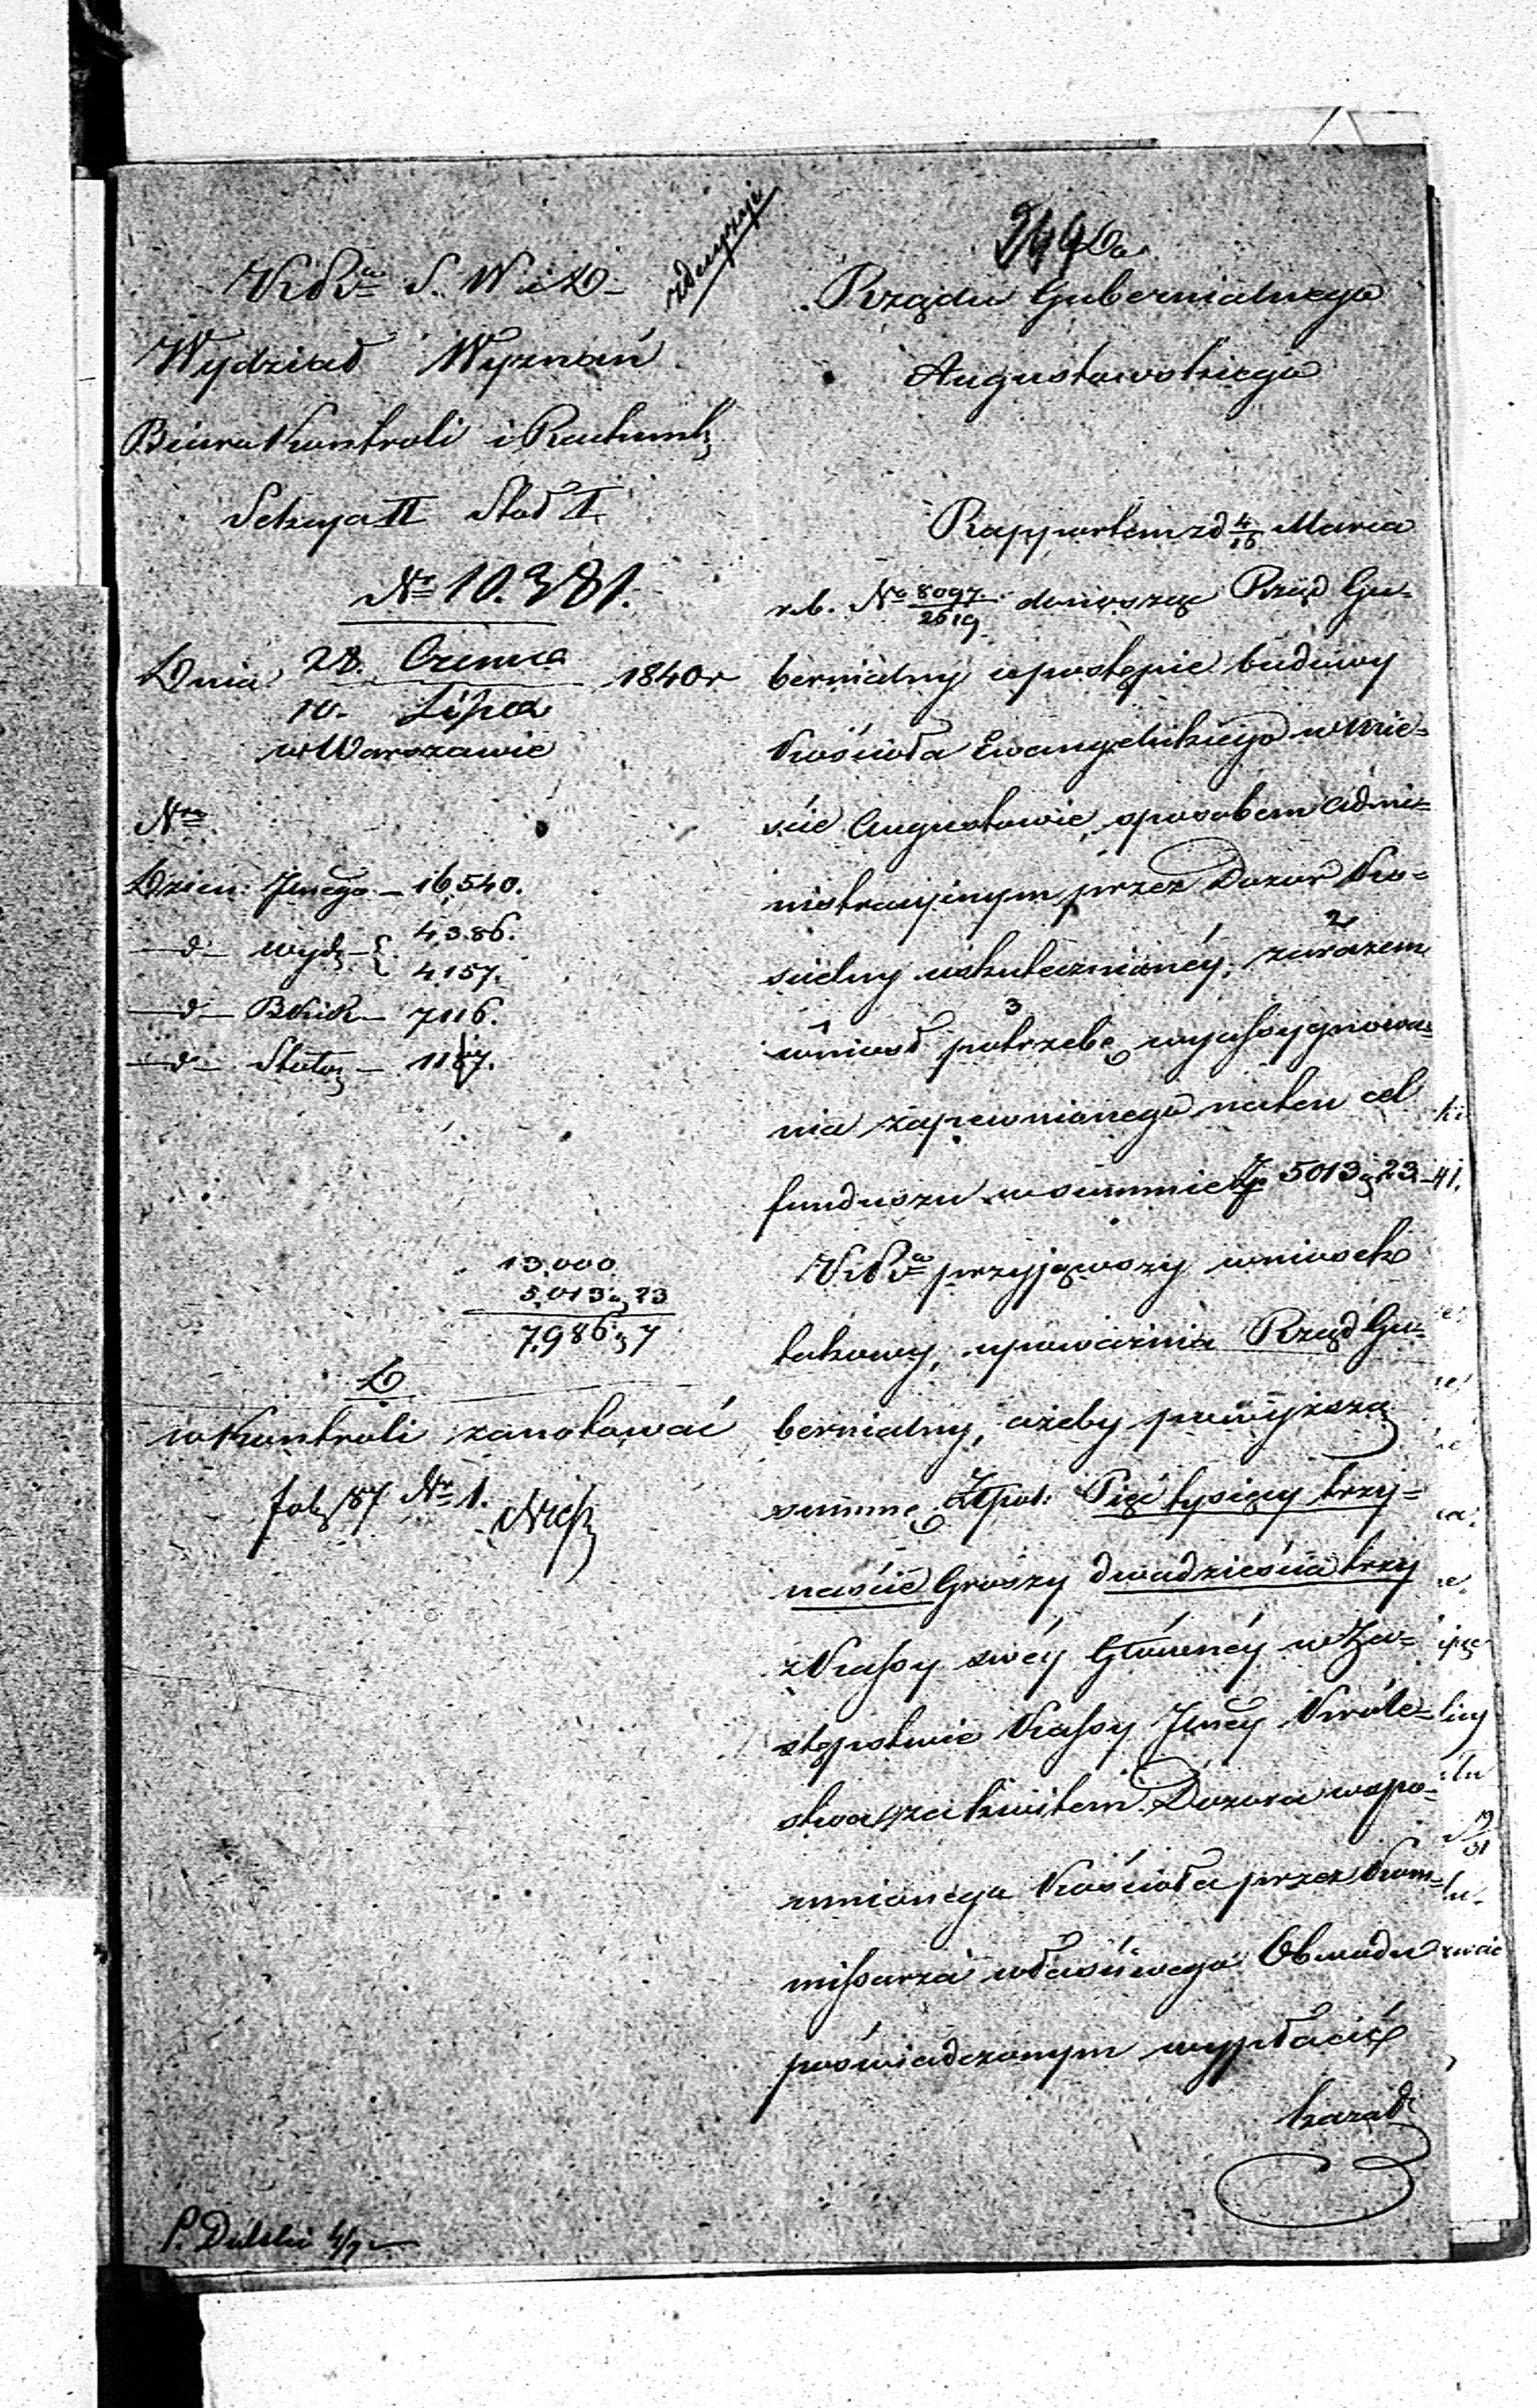 K. R. S. W. i D.
Wydział Wyznań
Biuro Kontroli i Rachunk
Sekcya II Stoł I.
No 10.381.
Dnia 28. Czerwca 1840 r
10. Lipca
w Warszawie
Nra
Dzien: Jlnego – 16,540.
— d — wydz – { 4386.
4157.
— d — BKiR – 7116.
— d — Stoło –
13,000
5,013 g 23
7,986 g 7
D
w Kontroli zanotować
fol 187 No 1.
P. Dulski 4/7
Do
Rządu Gubernialnego
Augustowskiego
Rapportem z d 4/16 Marca
r.b. No 8097/2619 donosząc Rząd Gu=
bernialny o postępie budowy
Kościoła Ewangelickiego w mie=
ście Augustowie, sposobem admi=
nistracyjnym przez Dozór Ko=
ścielny uskutecznianéy, zarazem 2
1 wniósł 3 potrzebę wyassygnowa=
nia zapewnionego na ten cel
funduszu w summie Zł 5013 g 23.
K. R. przyjąwszy wniosek
takowy, upoważnia Rząd Gu=
bernialny, ażeby powyższą
summę Złpol: Pięć tysięcy trzy=
naście Groszy dwadzieścia trzy
z Kassy swéy Głównéy w Za=
stępstwie Kassy Jlnéy Króle=
stwa, za kwitem Dozoru wspo=
mnionego Kościoła przez Kom=
missarza właściwego Obwodu
poświadczonym wypłacić
kazał